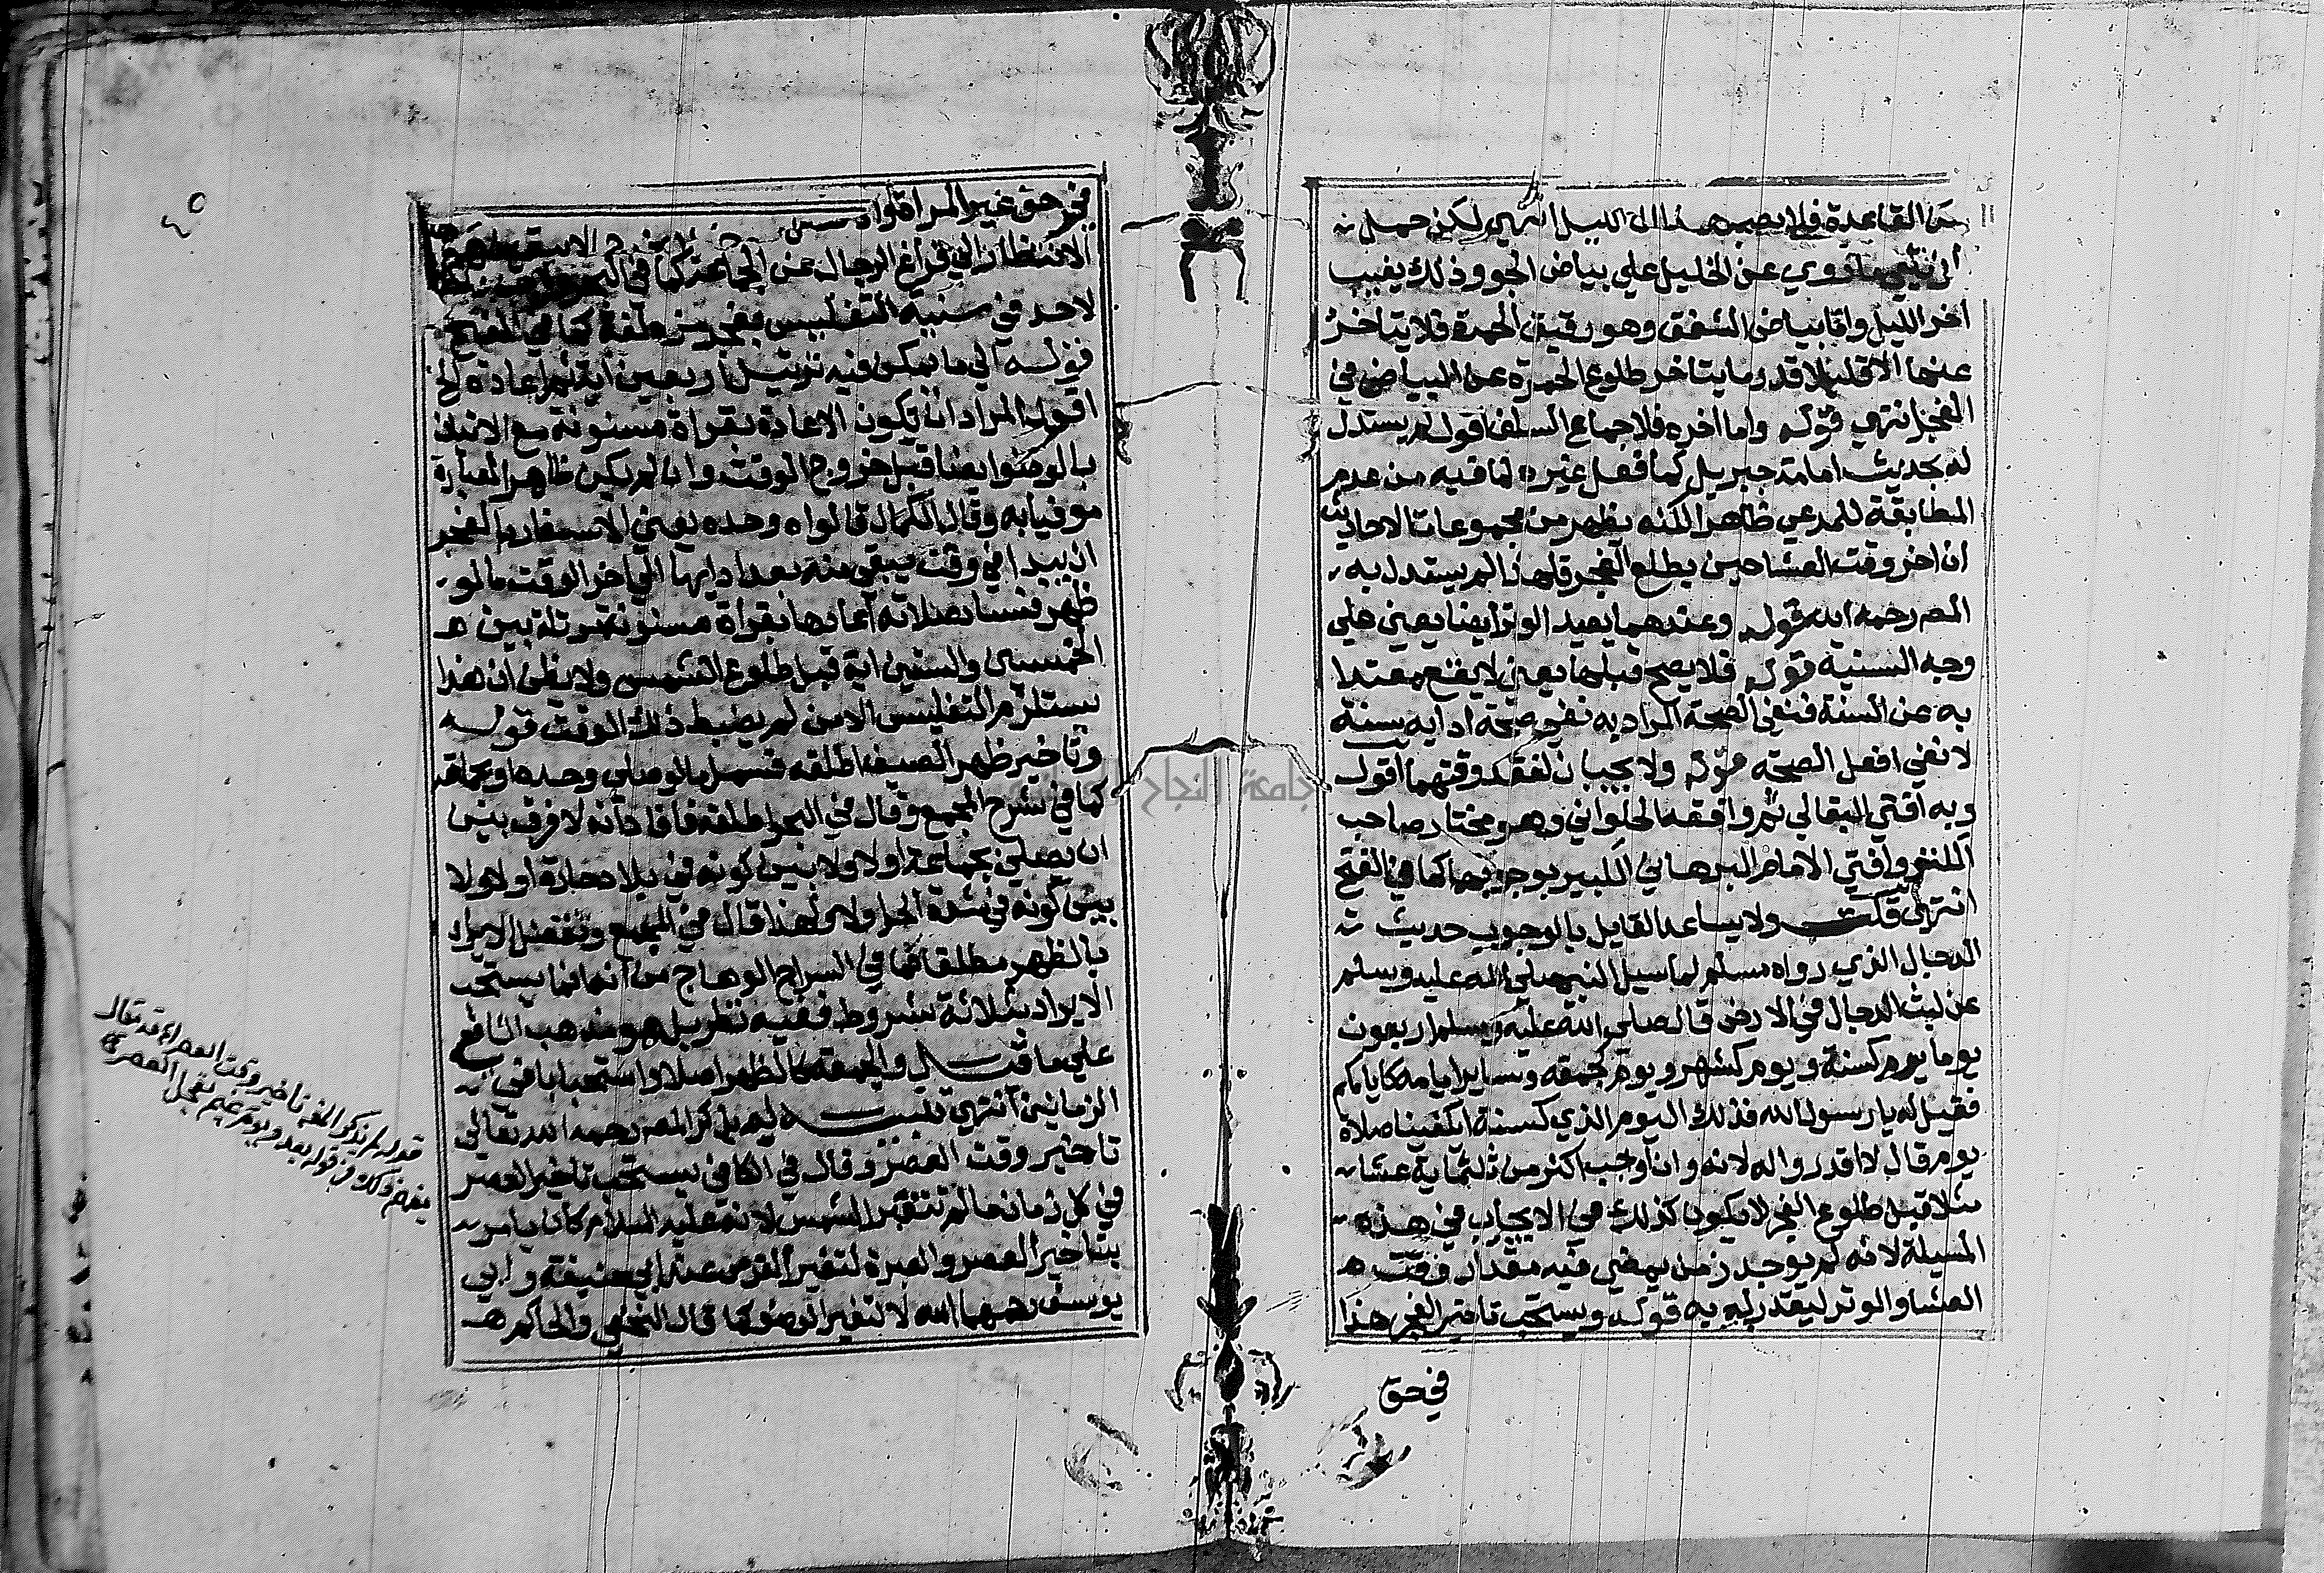 من القاعدة فما يصير هذا الى الليل انتهى لكن حمل
روي عن الخليل علي بياض الجو وذلك يغيب
اخر الليل واما بياض الشفق وهو رقيق الحمرة فلا يتاخر
عنها الا قليلا قدر ما يتاخر طلوع الحمرة عن البياض في
الفجر انتهي قوله واما اخره فلاجماع السلف اقول لم يستدل
له بحديث امامة جبريل كما فعل غيره لما فيه من عدم
المطابقة للمدعي ظاهرا لكنه يظهر من مجموعات الاحاديث
ان اخر وقت العشا حين يطلع الفجر فلهذا لم يستدل به
المص رحمه الله قوله وعندهما يعيد الوتر ايضا يعني علي
وجه السنية قوله فلا يصح قبلها يعني لا يقع معتدا
به عن السنة فنفي الصحة المراد به نفي صحة ادايه سنة
لا نفي اصل الصحة قوله ولا يجبان لفقد وقتهما اقول
وبه افتي البقالي ثم وافقه الحلواني وهو مختار صاحب
الكنز وافتي الامام البرهاني الكبير بوجوبها كما في الفتح
انتهى قلت ولا يساعد القايل بالوجوب حديث
الدجال الذي رواه مسلم لما سيل النبي صلى الله عليه وسلم
عن لبث الدجال في الارض قال صلى الله عليه وسلم اربعون
يوما يوم كسنة ويوم كشهر ويوم كجمعة وساير ايامه كايامكم
فقيل له يا رسول الله فذلك اليوم الذي كسنة ايكفينا صلاة
يوم قال لا اقدروا له لانه وان اوجب اكثر من ثلثماية عشا
مثلا قبل طلوع الفجر لا يكون كذلك في الايجاب في هذه
المسيلة لانه لم يوجد زمن يمضي فيه مقدار وقت
العشا والوتر ليقدر به قوله ويستحب تاخير الفجر هذا
في حق
٤٥
في حق غير المراة
الانتظار الي فراغ الرجال عن الجماعة كما في
لاحد في سنية التغليس بفجر مزدلفة كما في الفتح
قوله الي ما يمكن فيه ترتيل اربعين اية ثم اعادة الخ
اقول المراد ان تكون الاعادة بقراة مسنونة مع الاتيان
بالوضوء ايضا قبل خروج الوقت وان لم يكن ظاهر العبارة
موفيا به وقال الكمال قالوا وحده يعني الاسفار بالفجر
ان يبدا في وقت يبقي منه بعد ادايها الي اخر الوقت ما لو
ظهر فساد صلاته اعادها بقراة مسنونة مرتلة بين
الخمسين والستين اية قبل طلوع الشمس ولا يظن ان هذا
يستلزم التغليس الا من لم يضبط ذلك الوقت قوله
وتاخير ظهر الصيف اطلقه فشمل ما لو صلى وحده او بجماعة
كما في شرح المجمع وقال في البحر اطلقه فافاد انه لا فرق بين
ان يصلي بجماعة اولا ولا بين كونه في بلاد حارة اولا ولا
بين كونه في شدة الحر اولا ولهذا قال في المجمع وتفضل الابراد
بالظهر مطلقا فما في السراج الوهاج من انه انما يستحب
الايراد بثلاثة شروط ففيه نظر بل هو مذهب الشافعي
علي ما قيل والجمعة كالظهر اصلا واستحبابا في
الزمانين انتهى تنبيه لم يذكر المص رحمه الله تعالي
تاخير وقت العصر وقال في الكافي يستحب تاخير العصر
في كل زمان ما لم تتغير الشمس لانه عليه السلام كان يامر
بتاخير العصر والعبرة لتغير القرص عند ابي حنيفة وابي
يوسف رحمهما الله لا لتغير الضو كما قال النخعي والحاكم
قوله لم يذكر المص تاخير وقت العصر
يفهم ذلك من قوله بعد ويوم غيم تعجل العصر